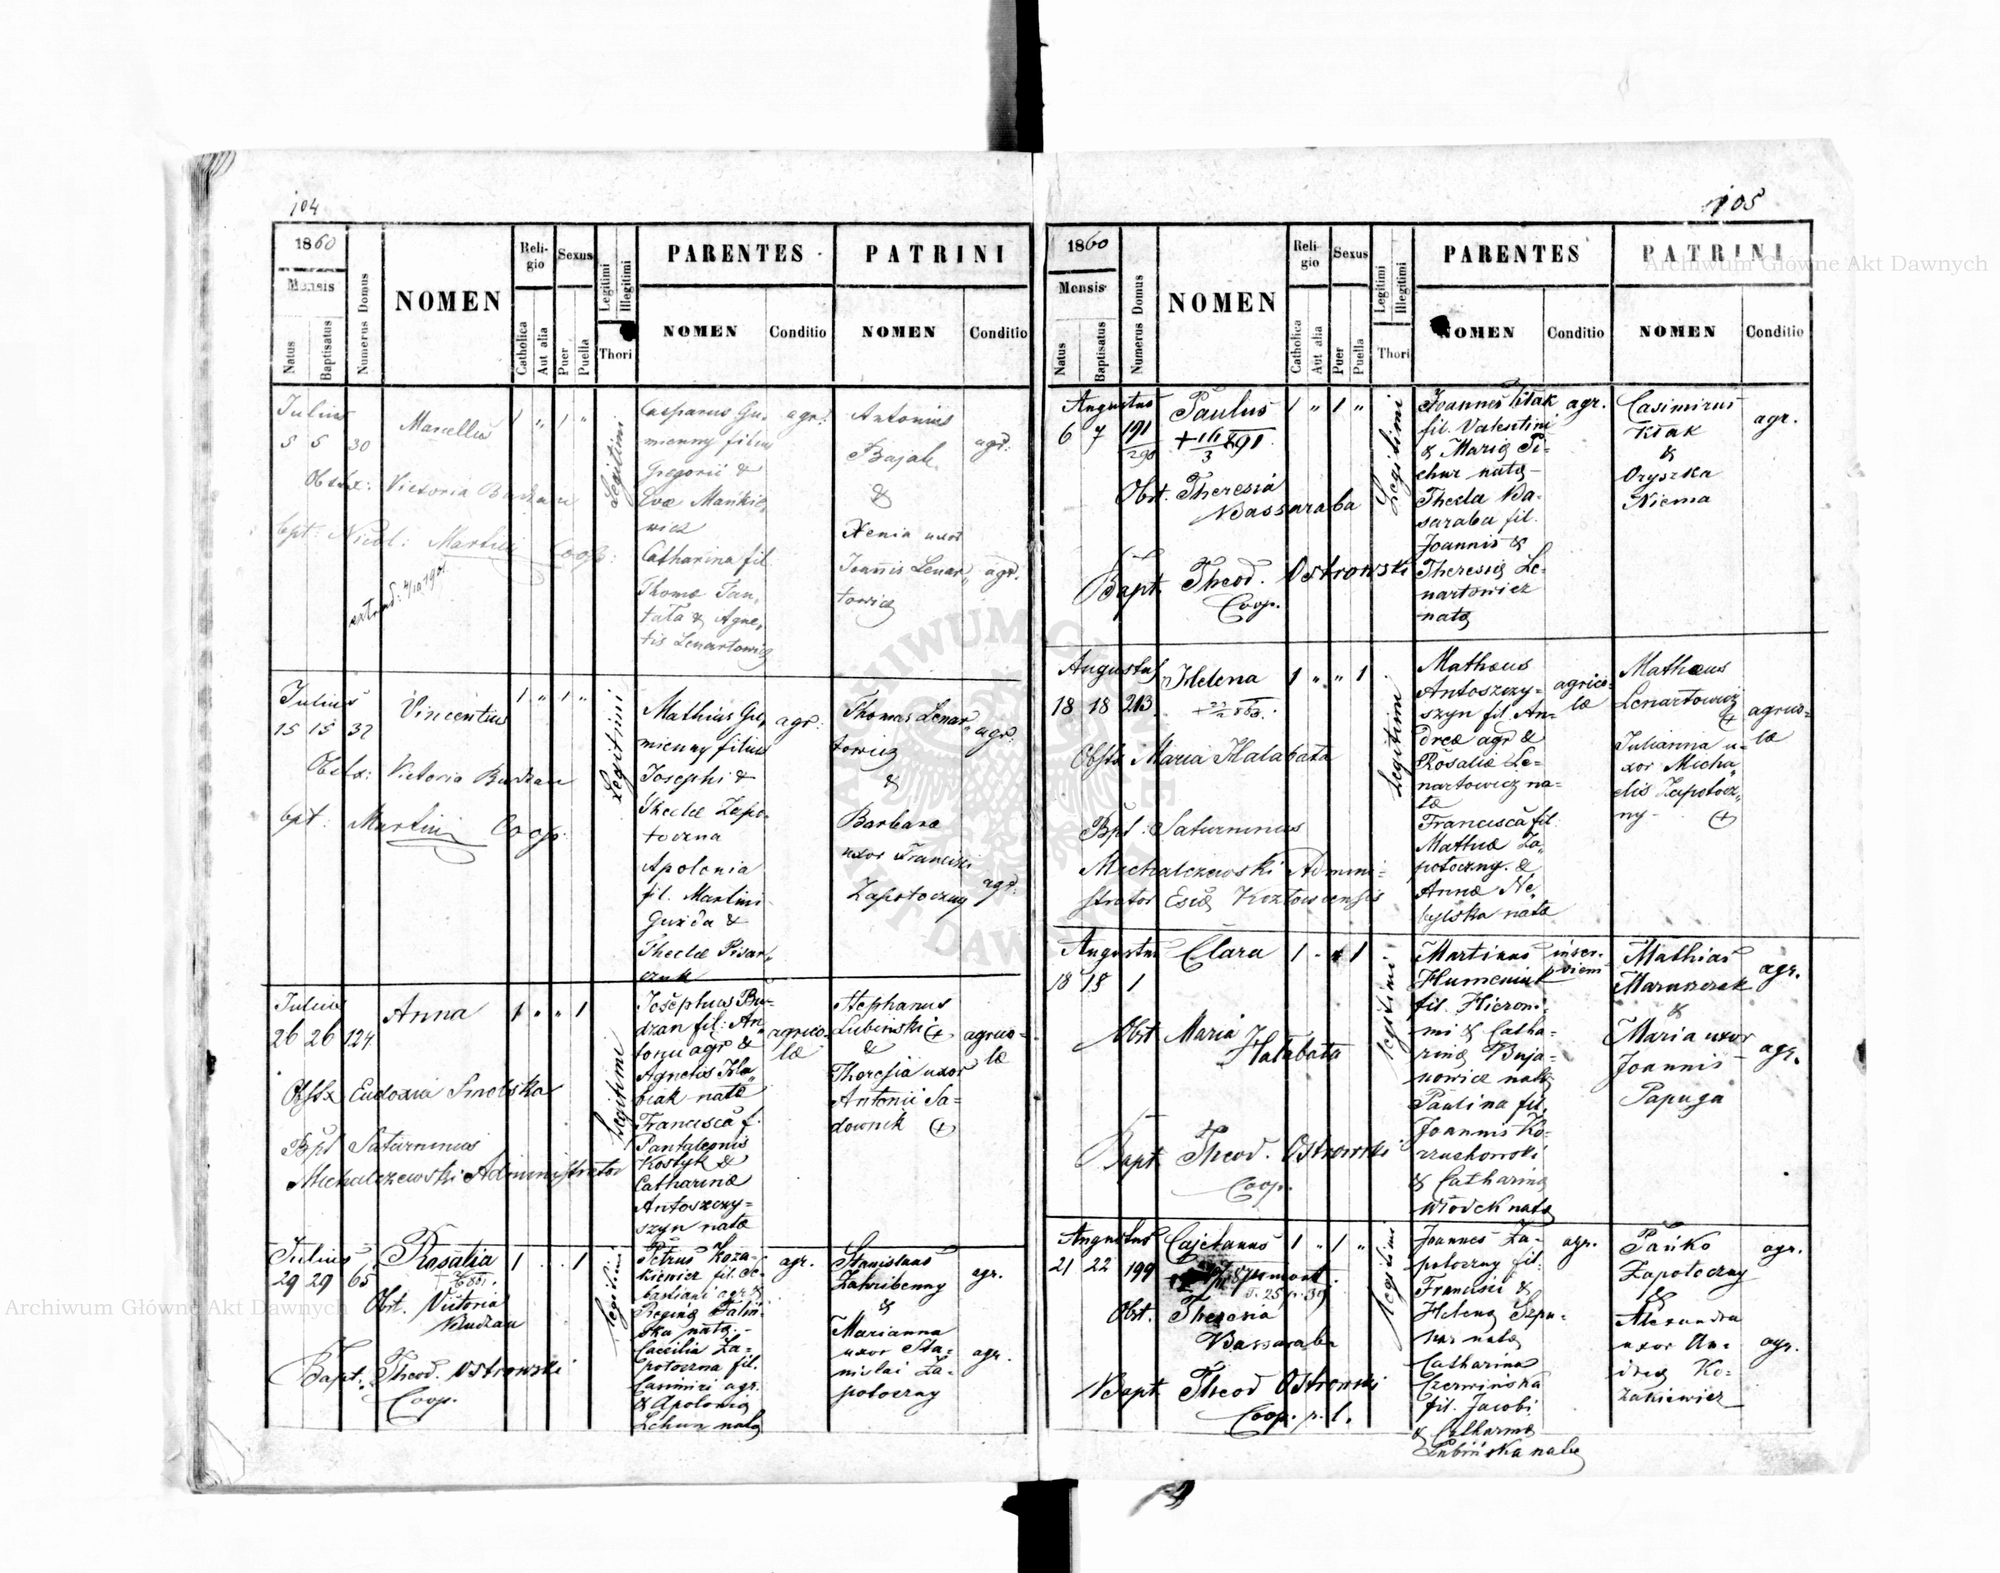 104
1860
Mensis
Natus
Baptisatus
Numerus Domus
NOMEN
Religio
Catholica
Aut alia
Sexus
Puer
Puella
Legitimi
Illegitimi
Thori
PARENTES
NOMEN
Conditio
PATRINI
NOMEN
Conditio
Julius
5 5 30
Marcellus
1 " 1 "
Legitimi
Obstx: Victoria Budzan
bpt: Nicol: Martini Coop:
extrad:
Casparus Gu,
mienny filius
Gregorii &
Evae Mańkie,
wicz
Catharina fil
Thomae Tan,
tała & Agne,
tis Lenartowicz
agr:
Antonius
Bajak
&
Xenia uxor
Joannis Lenar,
towicz
agr:
agr.
Julius
15 15 32
Vincentius
1 " 1 "
Legitimi
Obstx: Victoria Budzan
bpt: Martini Coop:
Mathias Gu,
mienny filius
Josephi &
Theclae Zapo-
toczna
Apolonia
fil. Martini
Guzda &
Theclae Pisar,
czuk
agr:
Thomas Lenar,
towicz
&
Barbara
uxor Francisci
Zapotoczny
agr:
agr:
Julius
26 26 124
Anna
1 " " 1
Legitimi
Obstx Eudoxia Smolska
Bpt Saturninus
Michalczewski Administrator
Josephus Bu-
dzan fil: An,
tonii agr &
Agnetis Kła,
biak nata
Francisca f.
Pantaleonis
Kostyk &
Catharinae
Antoszczy=
szyn natae
agrico-
lae
Stephanus
Lubinski +
&
Theresia uxor
Antonii Sa-
downik +
agrico-
lae
Julius
29 29 65
Rosalia
1 . . 1
Legitimi
Obst. Victoria
Budzan
Bapt: Theod. Ostrowski
Coop.
Petrus Koza-
kiewicz fil. Se-
bastiani agr &
Reginae Saliń-
ska natae -
Caecilia Za-
potoczna fil.
Casimiri agr.
& Apoloniae
Lehun natae
agr.
Stanislaus
Zahribenny
&
Marianna
uxor Sta-
nislai Za-
potoczny
agr.
agr.
105
1860
Mensis
Natus
Baptisatus
Numerus Domus
NOMEN
Religio
Catholica
Aut alia
Sexus
Puer
Puella
Legitimi
Illegitimi
Thori
PARENTES
NOMEN
Conditio
PATRINI
NOMEN
Conditio
Augustus
6 7 191
290
Paulus
+ 16/3 891.
1 " 1 "
Legitimi
Obst. Theresia
Bassaraba
Bapt. Theod. Ostrowski
Coop.
Joannes Kłak
fil. Valentini
& Mariae Pi-
chur natae -
Thecla Ba-
saraba fil.
Joannis &
Theresiae Le-
nartowicz
natae
agr.
Casimirus
Kłak
&
Oryszka
Niema
agr.
Augustus
18 18 213
Helena
1 " " 1
Legitimi
Obstx Maria Hałabata
Bpt: Saturninus
Michalczewski Admini-
strator Ecclae Kozłoviensis
Mathaeus
Antoszczy-
szyn fil. An-
dreae agr &
Rosaliae Le-
nartowicz na-
tae
Francisca fil.
Mathiae Za,
potoczny. &
Annae Ne,
bylska natae
agrico-
lae
Mathaeus
Lenartowicz
+
Julianna u-
xor Micha,
elis Zapotocz,
ny - +
agrico-
lae
Augustus
18 18 1
Clara
1 - " 1
Legitimi
Obst Maria
Hałabata
Bapt. Theod. Ostrowski
Coop.
Martinus
Humeniuk
fil. Hieroni-
mi & Catha-
rinae Buja-
nowicz natae
Paulina fil.
Joannis Ko-
rzuchowski
& Catharinae
Włodek natae
inser-
viens
Mathias
Maruszczak
&
Maria uxor
Joannis
Papuga
agr.
agr.
Augustus
21 22 199
Cajetanus
1 " 1 "
Legitimi
T. 25 p. 39
Obst. Theresia
Bassaraba
Bapt Theod Ostrowski
Coop. p. l.
Joannes Za-
potoczny fil.
Francisci &
Helenae Sepu-
har natae
Catharina
Czerwińska
fil. Jacobi
& Catharinae
Lubińska natae
agr.
Pańko
Zapotoczny
&
Alexandra
uxor An-
dreae Ko-
zakiewicz
agr.
agr.
Archiwum Główne Akt Dawnych
Archiwum Główne Akt Dawnych